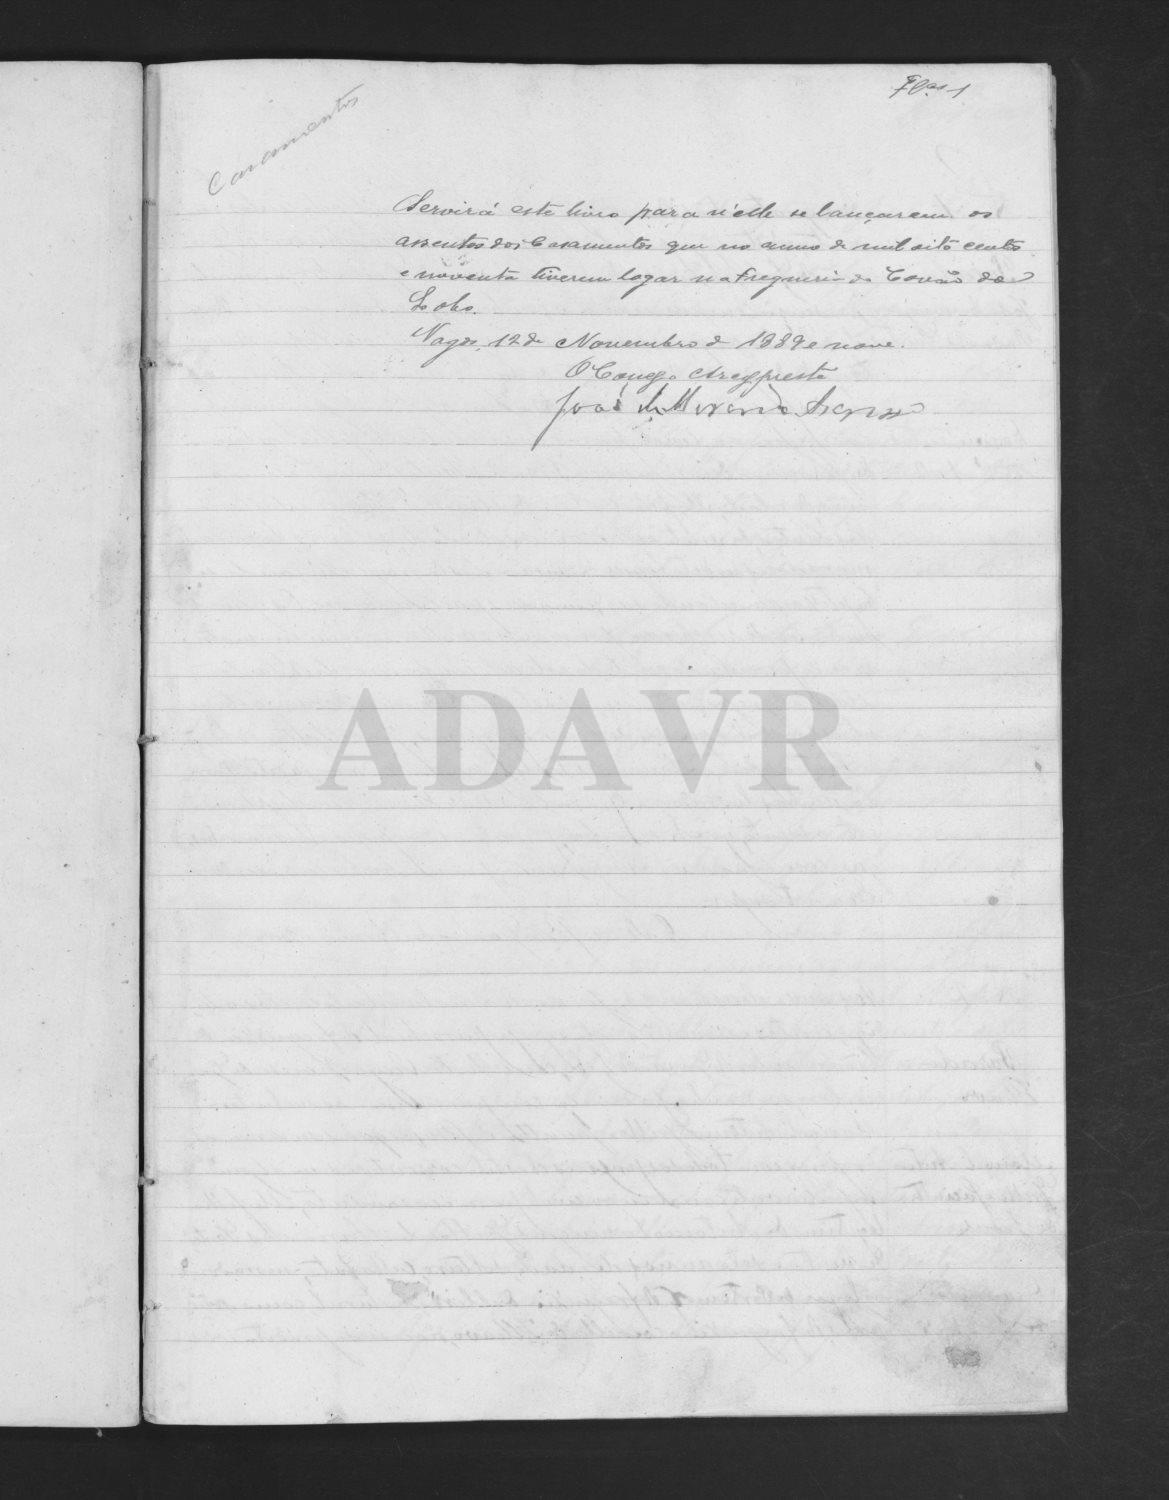 Fls 1
Casamentos
Servirá este livro para n'elle se lançarem os
assentos dos Casamentos que no anno de mil oito centos
e noventa tiverem logar na freguezia do Covão do
Lobo.
Vagos, 12 de Novembro de 1889 e nove.
O Conego Arcypreste
João de Miranda
ADAVR